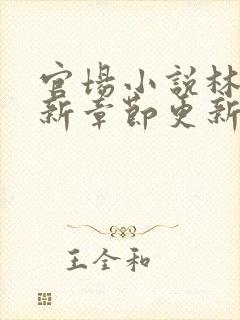 官场小说林
新章节更新
王全和